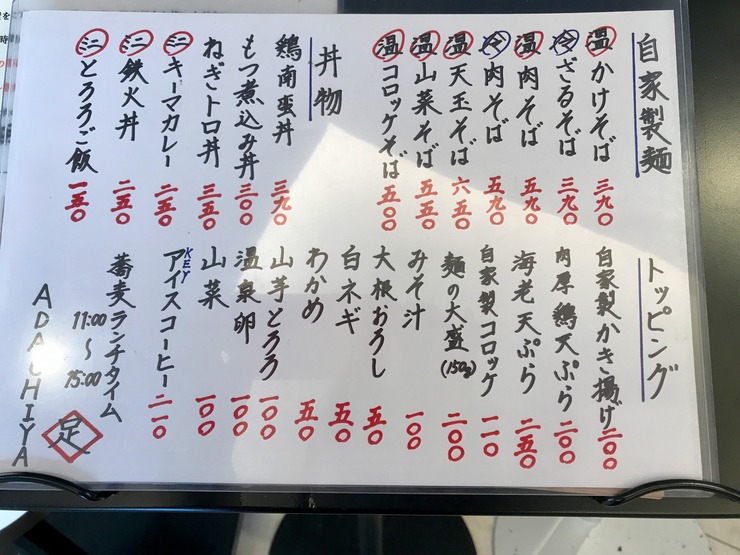 自家製麺
温 かけそば 三九〇
冷 ざるそば 三九〇
温 肉そば 五九〇
冷 肉そば 五九〇
温 天玉そば 六五〇
温 山菜そば 五五〇
温 コロッケそば 五〇〇
丼物
鶏南蛮丼 三九〇
もつ煮込み丼 三〇〇
ねぎトロ丼 三五〇
ミニ キーマカレー 二五〇
ミニ 鉄火丼 二五〇
ミニ とろろご飯 一五〇
トッピング
自家製かき揚げ 二〇〇
肉厚鶏天ぷら 二〇〇
海老天ぷら 二五〇
自家製コロッケ 一一〇
麺の大盛(150g) 二〇〇
みそ汁 一〇〇
大根おろし 五〇
白ネギ 五〇
わかめ 五〇
山芋とろろ 一〇〇
温泉卵 一〇〇
山菜 一〇〇
KEY
アイスコーヒー 二一〇
蕎麦ランチタイム
11:00～15:00
足
ADACHIYA